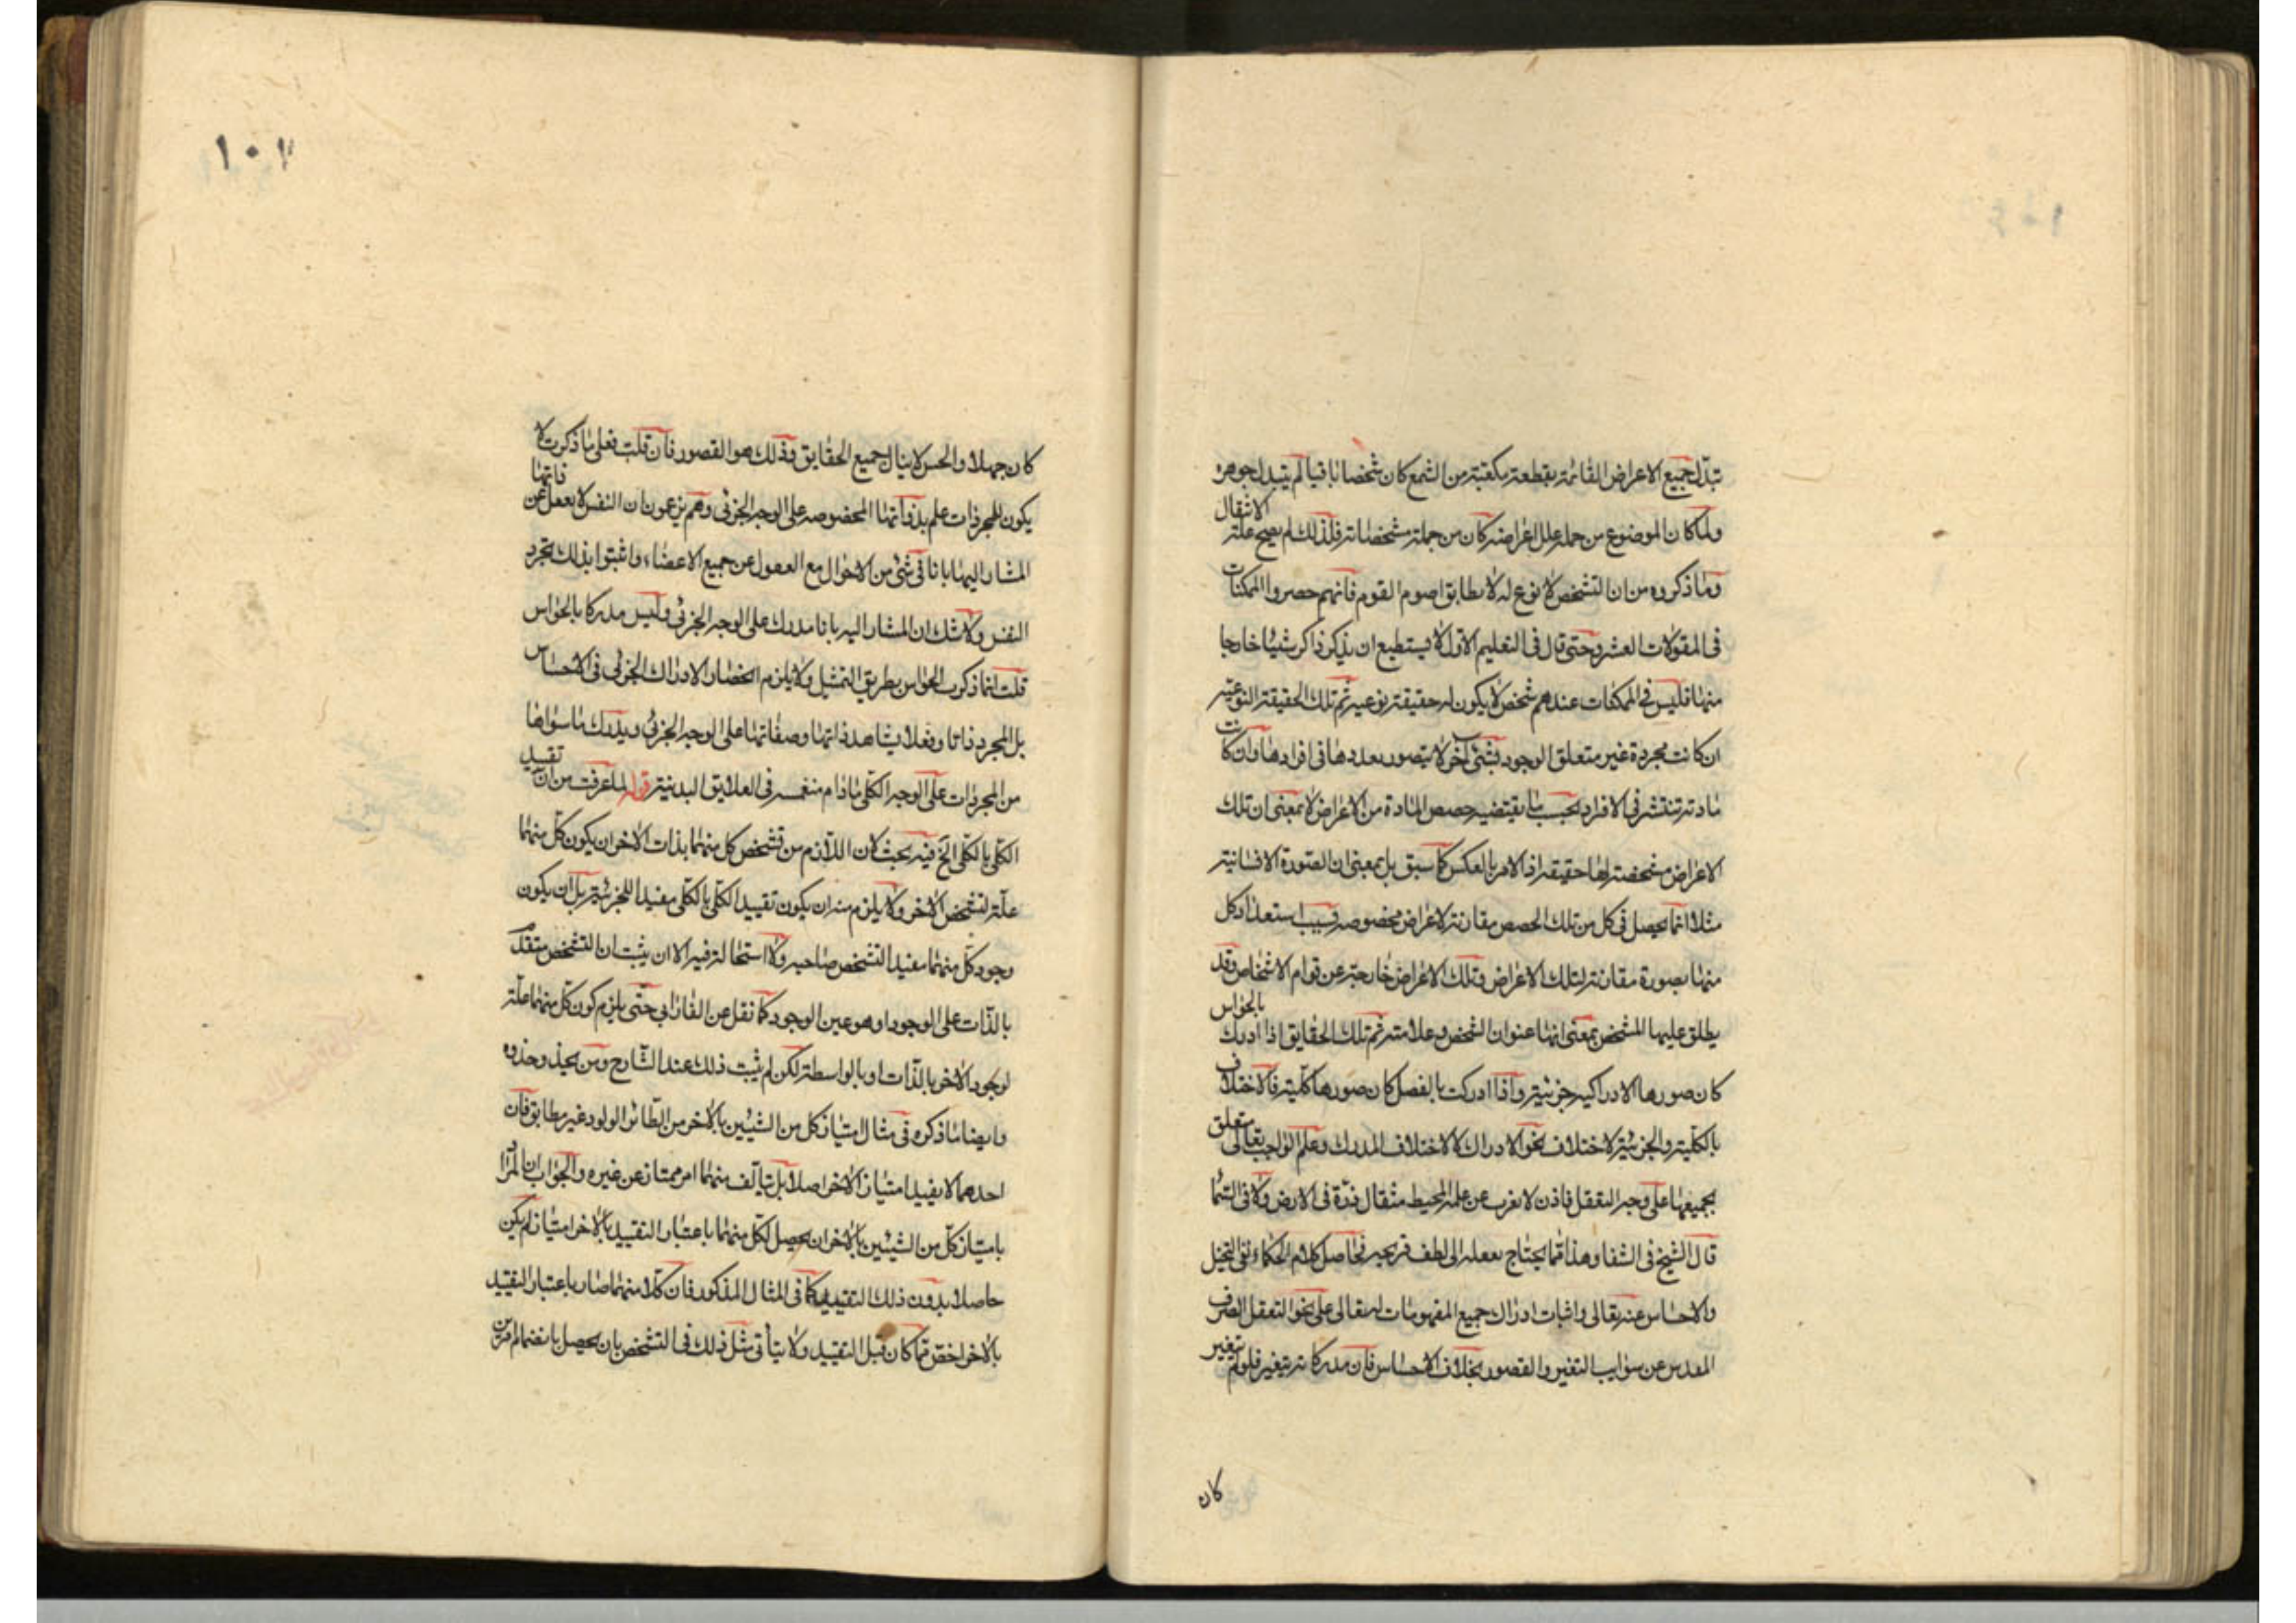 تبدّل جميع الاعراض القائمة بقطعة مكعبة من الشمع كان شخصا باقيا لم يتبدل جوهره
ولما كان الموضوع من جملة علل اعراضه كان من جملة مشخصاته فلذلك لم يصح عليه الانتقال
وما ذكروه من ان التشخص لا نوع له لا يطابق اصوم القوم فانهم حصروا الممكنات
فى المقولات العشر وحتى قال فى التعليم الاول لا يستطيع ان يذكر ذاكر شيئا خارجا
منها فليس فى الممكنات عندهم شخص لا يكون له حقيقة نوعية ثم تلك الحقيقة النوعية
ان كانت مجردة غير متعلق الوجود بشئ آخر لا يتصور تعددها فى افرادها وان كانت
مادته تنتشر فى الافراد بحسب ما يقتضيه حصص المادة من الاعراض لا بمعنى ان تلك
الاعراض مشخصة لها حقيقة اذ الامر بالعكس كما سبق بل بمعنى ان الصورة الانسانية
مثلا انما يحصل فى كل من تلك الحصص مقارنة لاعراض مخصوصه بسبب استعداد كل
منها بصورة مقارنة لتلك الاعراض وتلك الاعراض خارجة عن قوام الاشخاص وقد
يطلق عليها المشخص بمعنى انها عنوان الشخص وعلامته ثم تلك الحقايق اذا ادرك بالحواس
كان صورها الادراكيه جزئية واذا ادركت بالفصل كان صورها كلية فالاختلاف
بالكلية والجزئية لاختلاف نحو الادراك لا لاختلاف المدرك وعلم الواجب تعالى متعلق
بجميعها على وجه التعقل فاذن لا يعزب عن علمه المحيط مثقال ذرة فى الارض ولا فى السماء
قال الشيخ فى الشفا وهذا مما يحتاج تعقله الى لطف قريحه فحاصل كلام الحكماء نفى التخيل
والاحساس عنه تعالى واثبات ادراك جميع المفهومات له تعالى على نحو التعقل الصرف
المقدس عن شوايب التغير والقصور بخلاف الاحساس فان مدركاته يتغير فلو لم يتغير
كان
١٠٧
كان جهلا والحس لا ينال جميع الحقايق وذلك هو القصور فان قلت فعلى ما ذكرت لا
يكون للمجردات علم بذواتها المخصوصه على الوجه الجزئى وهم يزعمون ان النفس لا يغفل عن ذاتها
المشار اليها بانا فى شئ من الاحوال مع الغفول عن جميع الاعضاء واثبتوا بذلك تجرد
النفس ولا شك ان المشار اليه بانا مدرك على الوجه الجزئى وليس مدركا بالحواس
قلت انما ذكرت الحواس بطريق التمثيل ولا يلزم انحصار الادراك الجزئى فى الاحساس
بل المجرد ذاتا وفعلا يشاهد ذاتها وصفاتها على الوجه الجزئى ويدرك ما سواها
من المجردات على الوجه الكلى ما دام منغمسه فى العلايق البدنية قوله لما عرفت من ان تقييد
الكلى بالكلى الخ فيه بحث لان اللازم من تشخص كل منهما بذات الاخر ان يكون كل منهما
علة لتشخص الاخر ولا يلزم منه ان يكون تقييد الكلى بالكلى مفيدا للجزئية بل ان يكون
وجود كل منهما مفيدا لتشخص صاحبه ولا استحالة فيه الا ان يثبت ان التشخص متقدم
بالذات على الوجود او هو عين الوجود كما نقل عن الفارابى حتى يلزم كون كل منهما علة
لوجود الاخر بالذات او بالواسطة لكن لم يثبت ذلك عند الشارح ومن يحذو حذوه
وايضا ما ذكره فى مثال امتياز كل من الشيئين بالاخر من الطائر الولود غير مطابق فان
احدهما لا يفيد امتياز الاخر اصلا بل يتألف منهما امر ممتاز عن غيره والجواب ان المراد
بامتياز كل من الشيئين بالاخر ان يحصل لكل منهما باعتبار التقييد بالاخر امتياز لم يكن
حاصلا بدون ذلك التقييد كما فى المثال المذكور فان كلا منهما صار باعتبار التقييد
بالاخر اخص مما كان قبل التقييد ولا يتأتى مثل ذلك فى التشخص بان يحصل بانضمام امرين